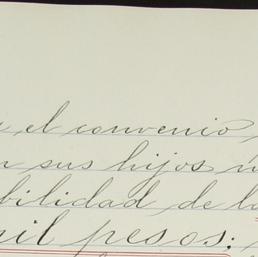 el convenio
sus hijos
bilidad de
mil pesos: